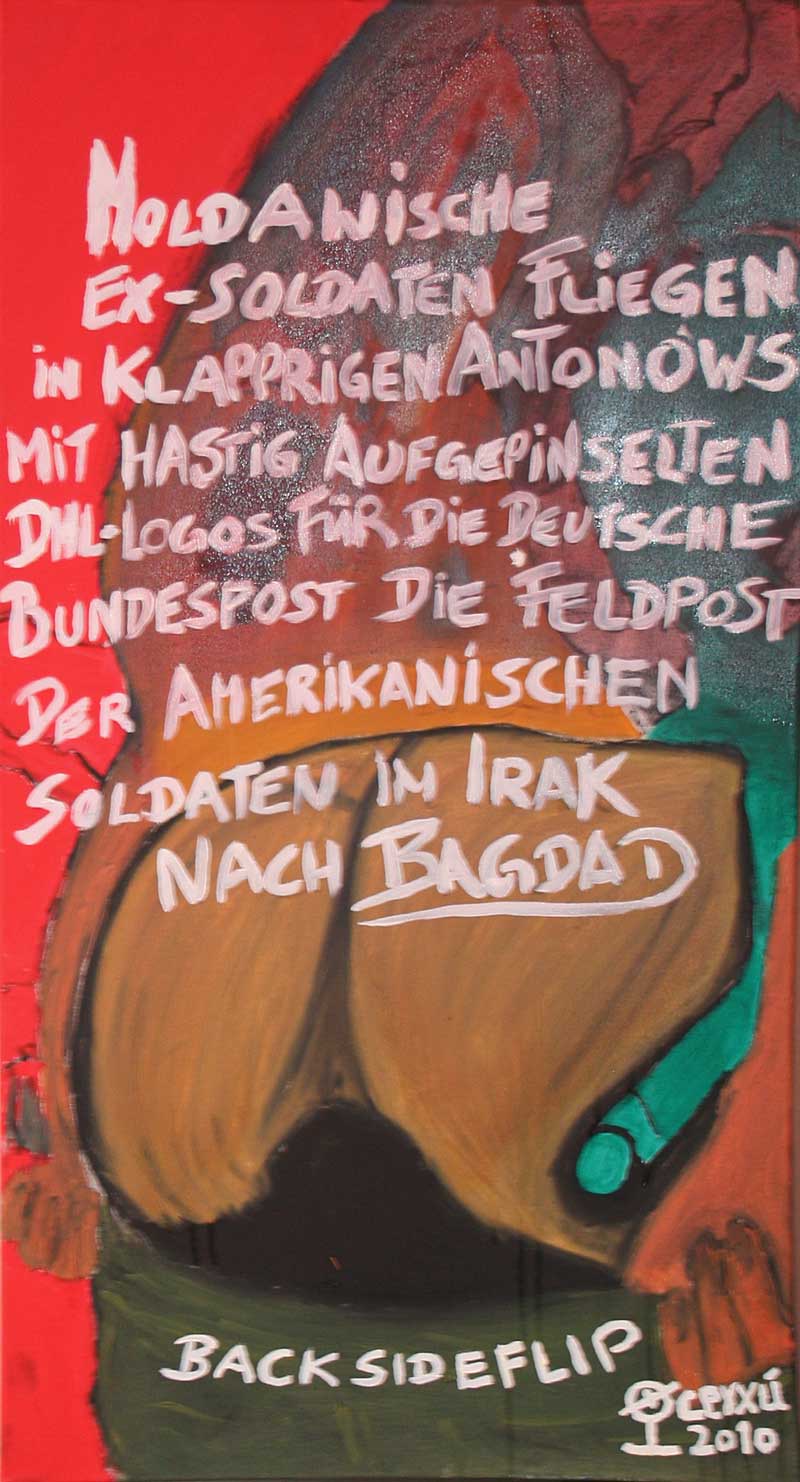 MOLDAWISCHE
EX-SOLDATEN FLIEGEN
iN KLAPPRIGEN ANTONOWS
MiT HASTiG AUFGEPiNSELTEN
DHL-LOGOS FÜR DiE DEUTSCHE
BUNDESPOST DiE FELDPOST
DER AMERiKANiSCHEN
SOLDATEN iM IRAK
NACH BAGDAD
BACKSIDEFLIP
2010